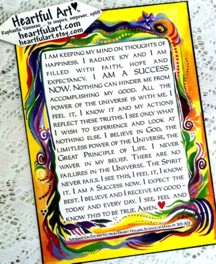 Heartful Art
Raphaella Vaisseau to inspire, empower, uplift
heartfulart.com
heartfulart.etsy.com
I AM KEEPING MY MIND ON THOUGHTS OF
HAPPINESS. I RADIATE JOY AND I AM
FILLED WITH FAITH, HOPE AND
EXPECTANCY. I AM A SUCCESS
NOW. NOTHING CAN HINDER ME FROM
ACCOMPLISHING MY GOOD. ALL THE
POWER OF THE UNIVERSE IS WITH ME. I
FEEL IT, I KNOW IT AND MY ACTIONS
REFLECT THESE TRUTHS. I SEE ONLY WHAT
I WISH TO EXPERIENCE AND LOOK AT
NOTHING ELSE. I BELIEVE IN GOD, THE
LIMITLESS POWER OF THE UNIVERSE, THE
GREAT PRINCIPLE OF LIFE. I NEVER
WAVER IN MY BELIEF. THERE ARE NO
FAILURES IN THE UNIVERSE. THE SPIRIT
NEVER FAILS. I SEE THIS, I FEEL IT, I KNOW
IT. I AM A SUCCESS NOW. I EXPECT THE
BEST. I BELIEVE AND RECEIVE MY GOOD
TODAY AND EVERY DAY. I SEE, FEEL AND
KNOW THIS TO BE TRUE. AMEN.